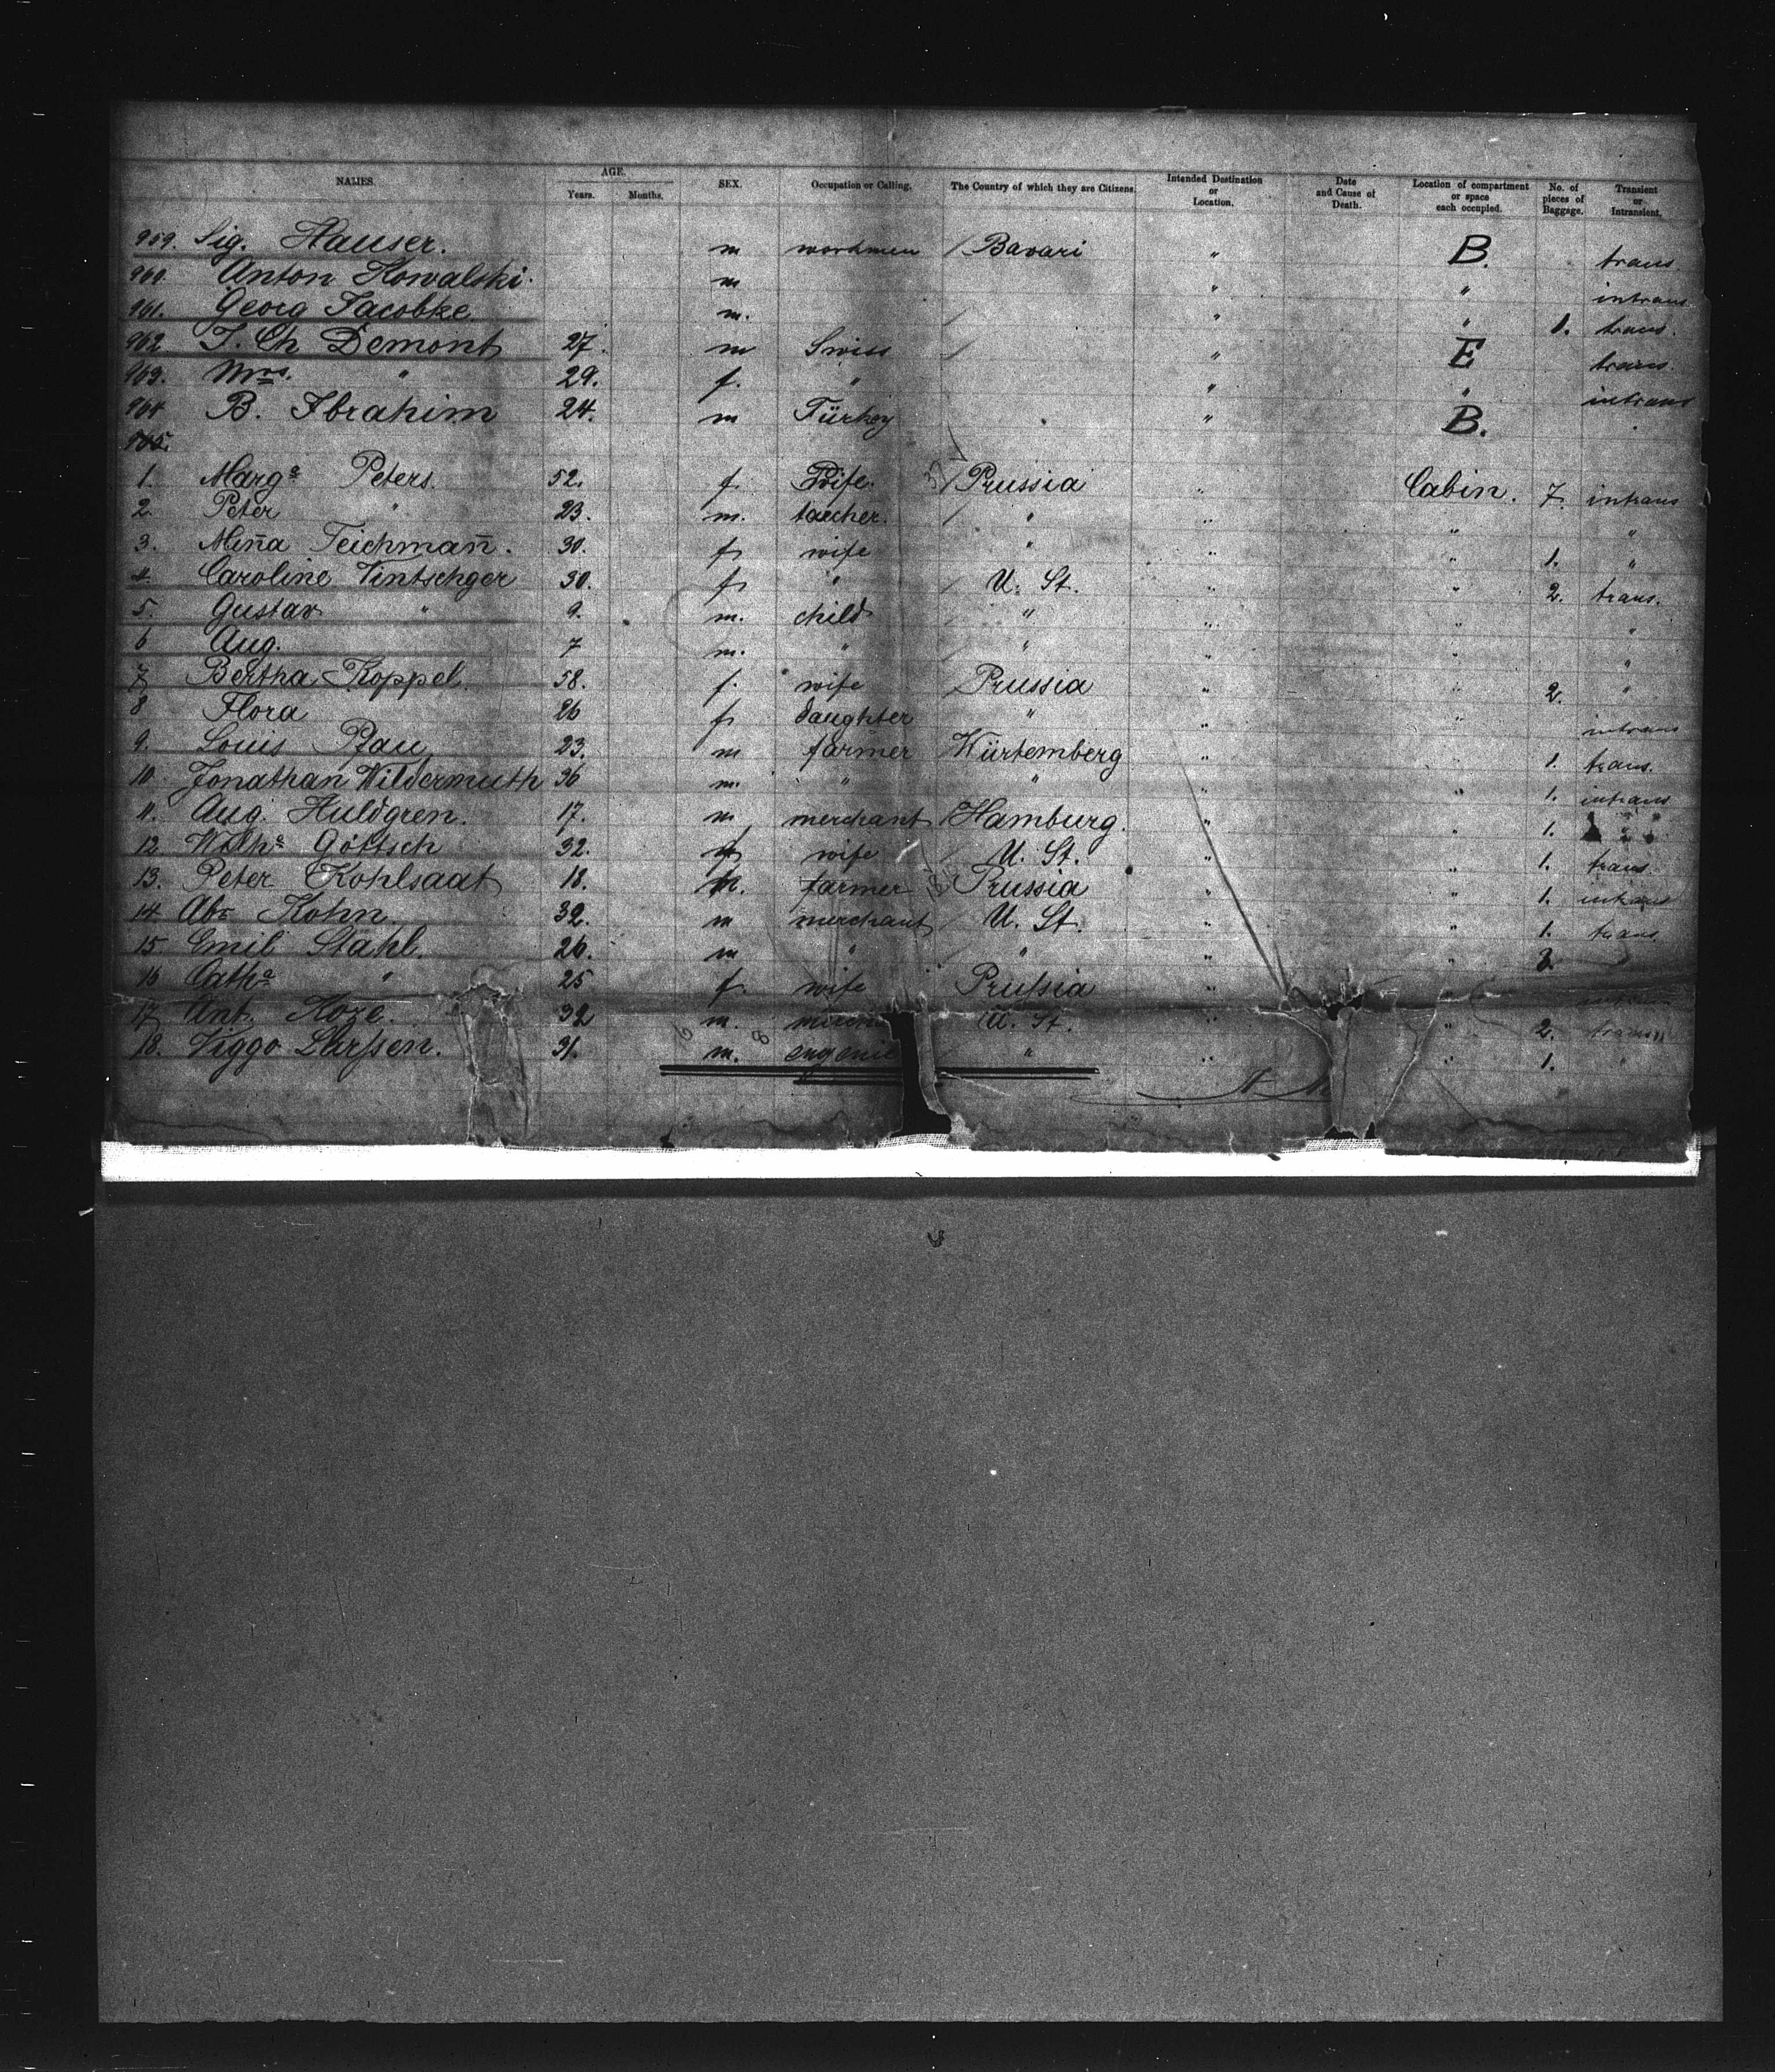 NAMES. AGE. Years. Months. SEX. Occupation or Calling. The Country of which they are Citizens. Intended Destination or Location. Date and Cause of Death. Location of compartment or space each occupied. No. of pieces of Baggage. Transient or Intransient.
959. Sig. Hauser. m workmen / Bavari " B. trans.
960. Anton Kowalski. m " " intrans
961. Georg Jacobke. m. / " " 1. trans.
962 J. Ch Demont 27. m Swiss / " E trans.
963. Mrs. " 29. f. " " " intrans
964 B. Ibrahim 24. m Türkey " B. "
965.
1. Marga Peters. 52. f. Wife. / Prussia " Cabin. 7. intrans
2. Peter " 23. m. taecher. / " " " "
3. Mina Teichman. 30. f wife " " " 1. "
4. Caroline Vintschger 30. f " / U. St. " " 2. trans.
5. Gustav " 9. m. child / " " " "
6 Aug. 7 m. " / " " " "
7 Bertha Koppel 58. f. wife Prussia " " 2. "
8 Flora 26 f daughter " " " intrans
9. Louis Pfau 23. m farmer Würtemberg " " 1. trans.
10. Jonathan Wildermuth 36 m. " " " " 1. intrans
11. Aug. Huldgren. 17. m merchant / Hamburg. " " 1. "
12. Göttsch 32. f wife / U. St. " " 1. trans.
13. Peter Kohlsaat 18. m. farmer Prussia " " 1. intrans
14 Abr. Kohn. 32. m merchant U. St. " " 1. trans.
15. Emil Stahl. 26. m " / " " " 3.
16 Catha " 25 f. wife Prussia " intrans
17 Ant. Hoze. 32 m. U. St. " " 2. trans
18. Viggo Larssen. 31. m. " " " 1. "